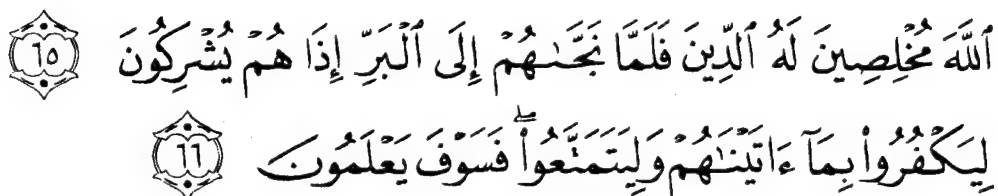 ٱللَّهَ مُخْلِصِينَ لَهُ ٱلدِّينَ فَلَمَّا نَجَّىٰهُمْ إِلَى ٱلْبَرِّ إِذَا هُمْ يُشْرِكُونَ ٦٥
لِيَكْفُرُوا۟ بِمَآ ءَاتَيْنَٰهُمْ وَلِيَتَمَتَّعُوا۟ ۖ فَسَوْفَ يَعْلَمُونَ ٦٦